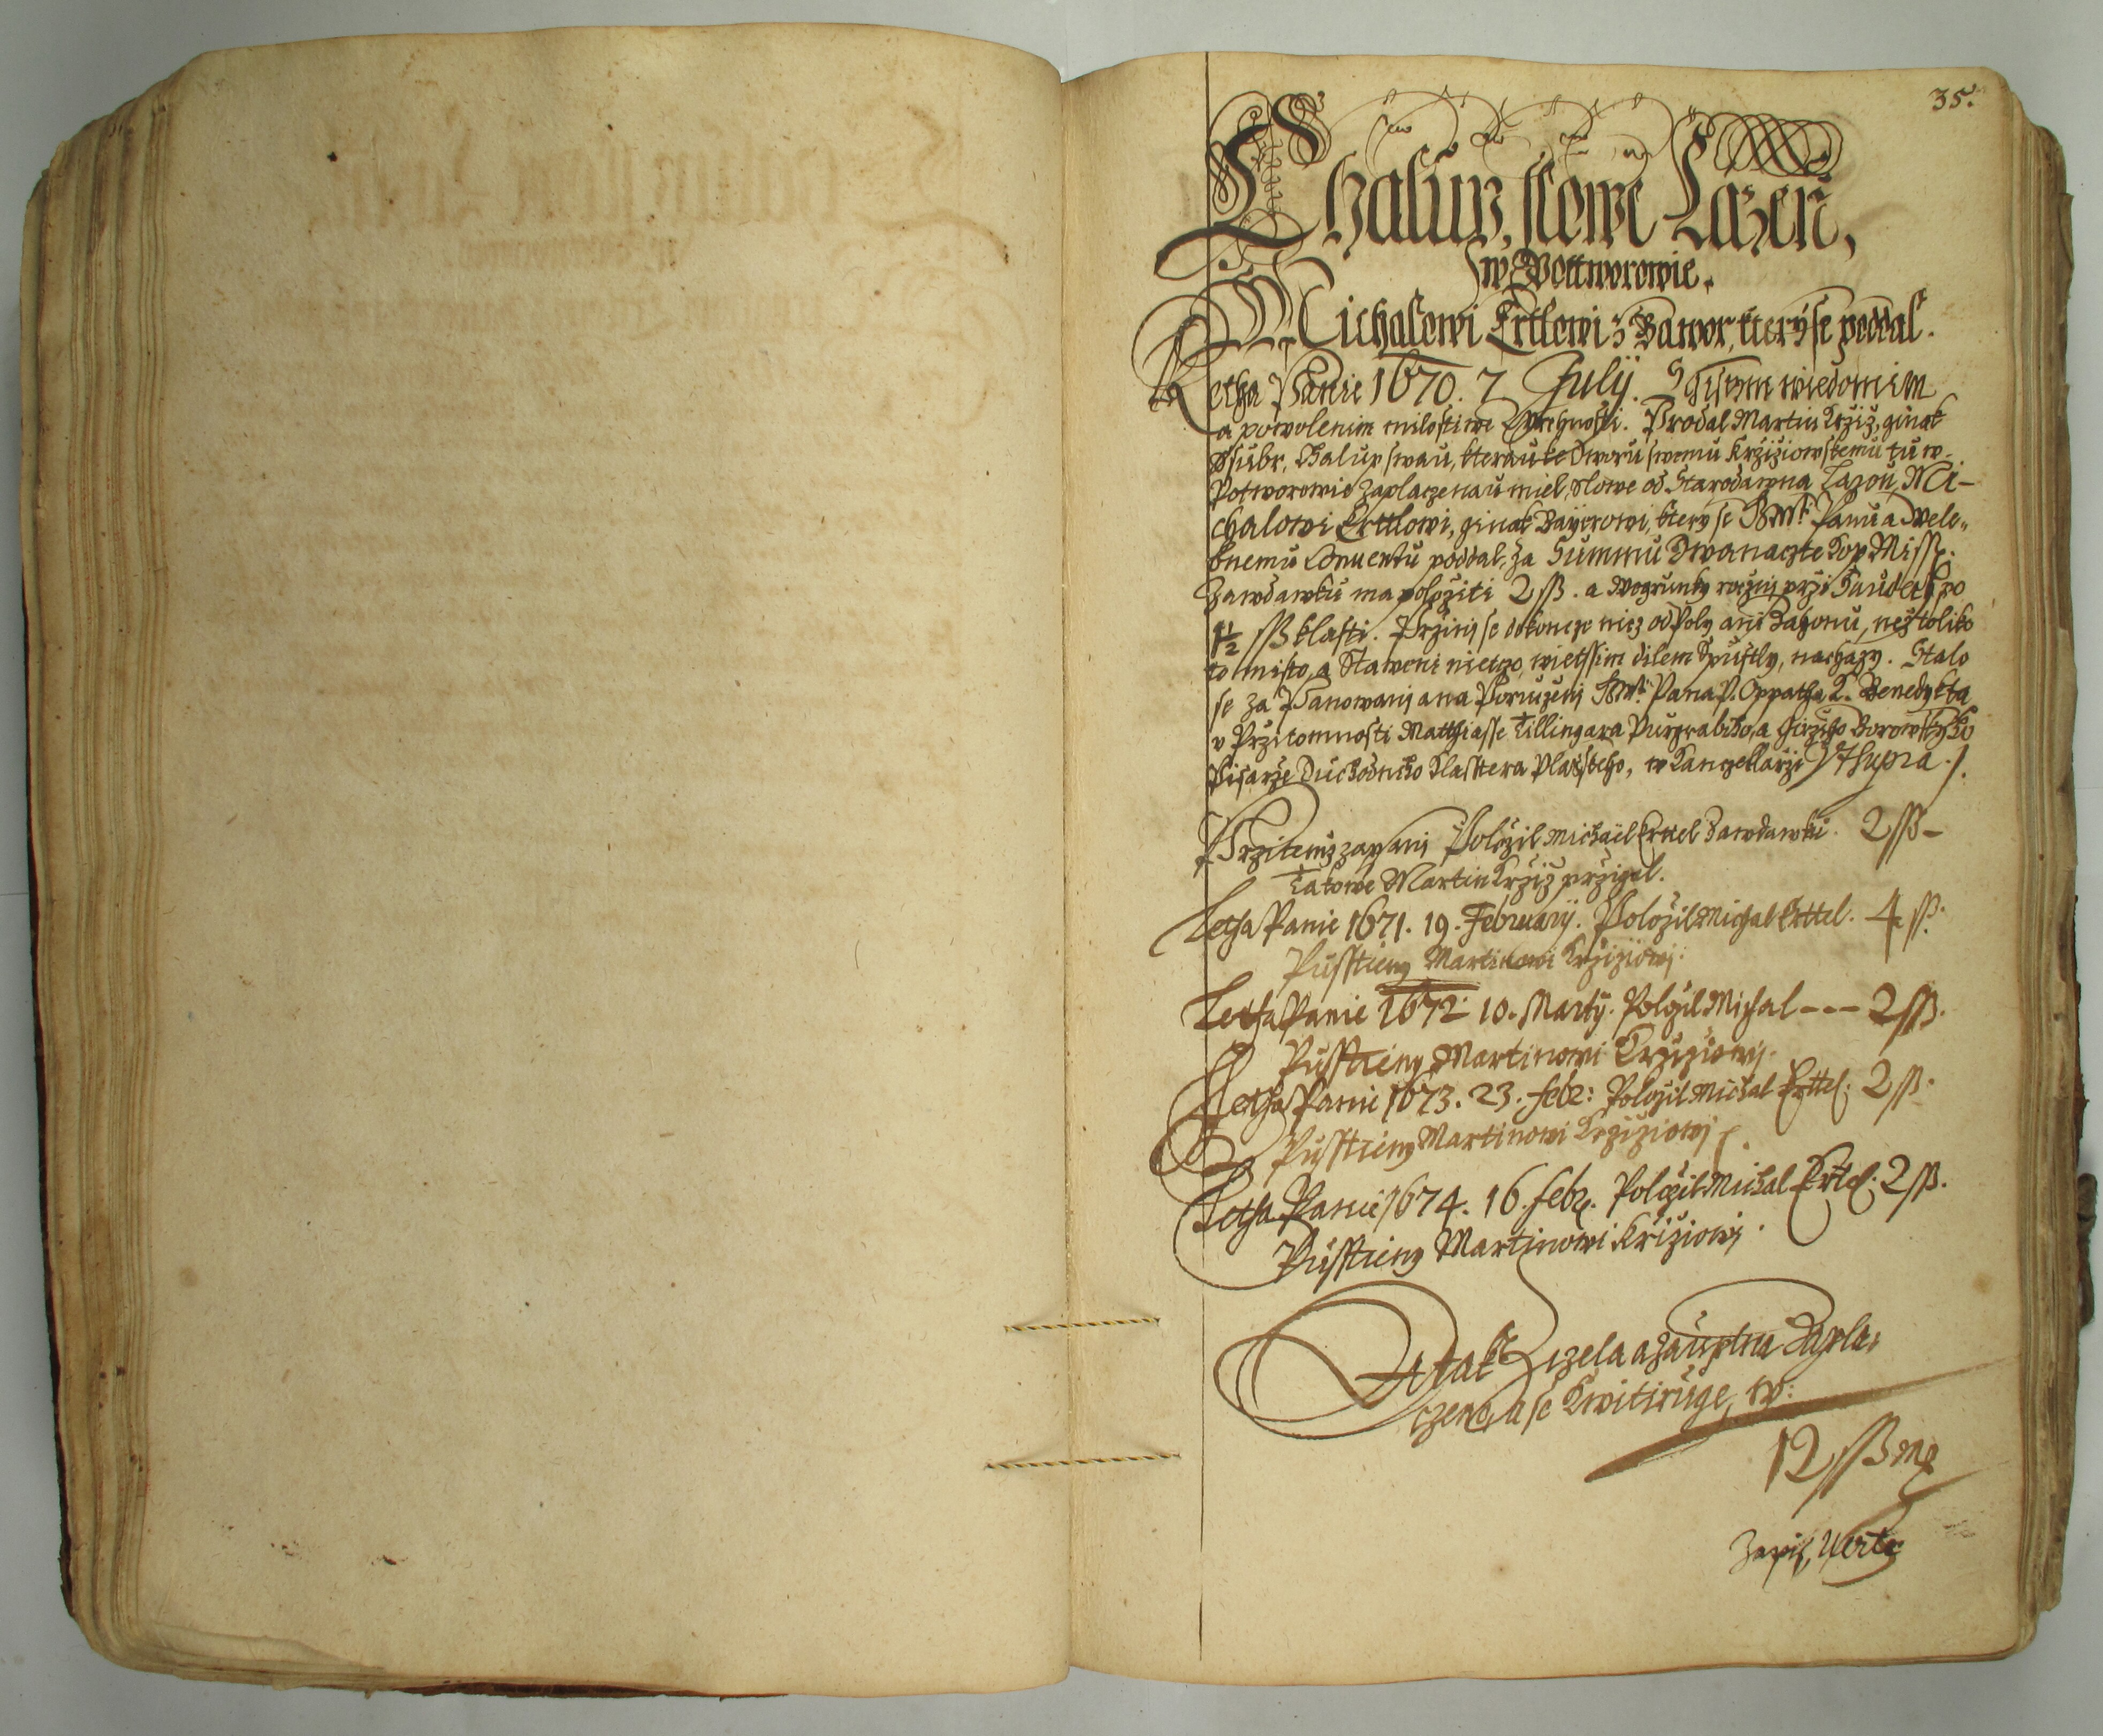 35.
Chalup, slowe Lazen,
w Pottworowie.
Michalowi Ertlowi z Bawor, kterÿ se poddal.
Letha Panie 1670. 7 Julÿ. S gistym wiedomim
a powolenim milostiwe Wrchnosti. Prodal Martin Krziz, ginak
Ssubr, Chalup swau, kterau ke dworu swemu Krziziowskemu tu w
Potworowie zaplaczenau miel, slowe od Starodawna Lazon, Mi-
chalowi Erttlowi, ginak Bayerowi, kterÿ se Panu a Wele-
bnemu Conuentu poddal, za Summu Dwanaczte kop Miss.
Zawdawku ma poloziti 2 ß. a Wogrunky rocznj przi Saudech po
1½ ß klasti. Przinj se dokoncze nicz od Poly ani Zahonu, nez toliko
to misto, a Staweni nieczo, wietssim dilem Spustly, nachazy. Stalo
se za Panowanj a na Poruczenj Pana P. Oppatha K. Benedykta
v Przitomnosti Matthiasse Tillingara Purgrabiho, a Girziho Borowskyho
Pisarze Duchodniho Klasstera Plasskeho, w Kanczellarzi Vt supra.
Przi temz zapsanj Polozil Michael Erttel Zawdawku. 2 ß –
Takowe Martin Krziz przigal.
Letha Panie 1671. 19. Februarÿ. Polozil Michal Erttel. 4 ß.
Pusstieny Martinowi Krziziowj.
Letha Panie 1672 10. Martÿ. Polozil Michal --- 2 ß.
Pusstieny Martinowi Krziziowj.
Letha Panie 1673. 23. febr: Polozil Michal Erttel. 2 ß.
Pusstieny Martinowi Krziziowj.
Letha Panie 1674. 16. febr. Polozil Michal Ertel. 2 ß.
Pusstieny Martinowi Kriziowj.
A tak Zczela a zauplna Zapla-
czena, a se Kwitiruge, w:
12 ß m
Verte